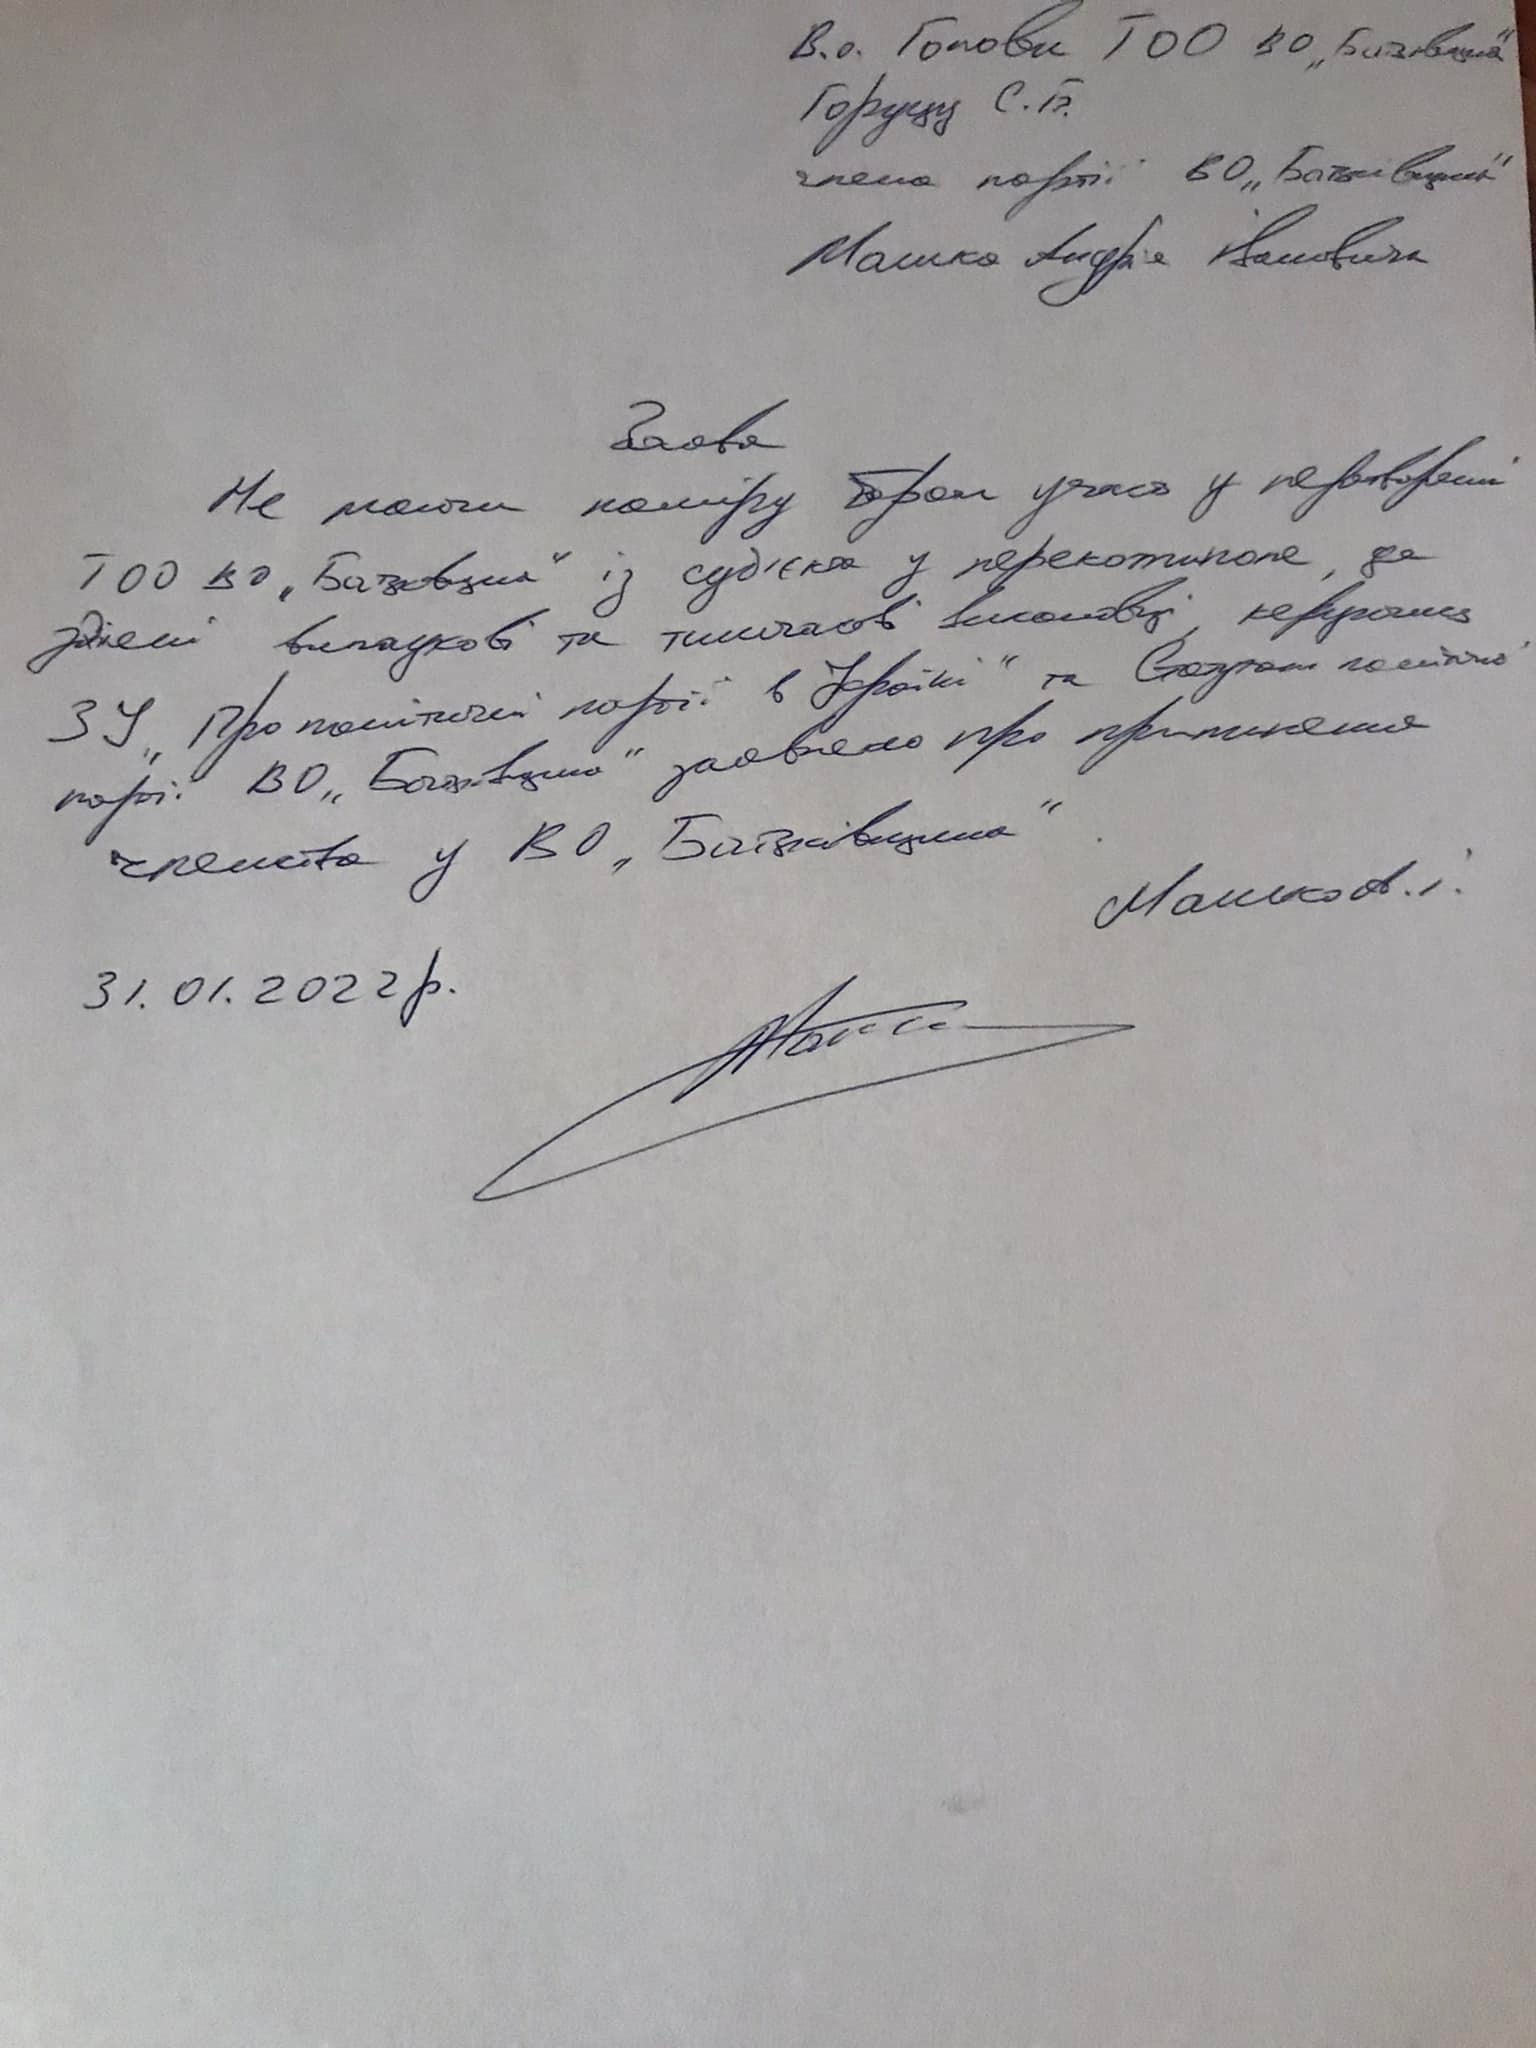 В.о. Голови ТОО ВО „Батьківщина"
Горуцу С.Б.
члена партії ВО „Батьківщина"
Машко Андрія Івановича
Заява
Не маючи наміру брати участь у перетворені
ТОО ВО „Батьківщина" із суб'єкта у перекотиполе, де
здіюні випадкові та тимчасові виконавці, керуючись
ЗУ „Про політичні партії в Україні" та Статутом політичної
партії ВО „Батьківщина" заявляю про припинення
членства у ВО „Батьківщина".
Машко А.І.
31.01.2022р.